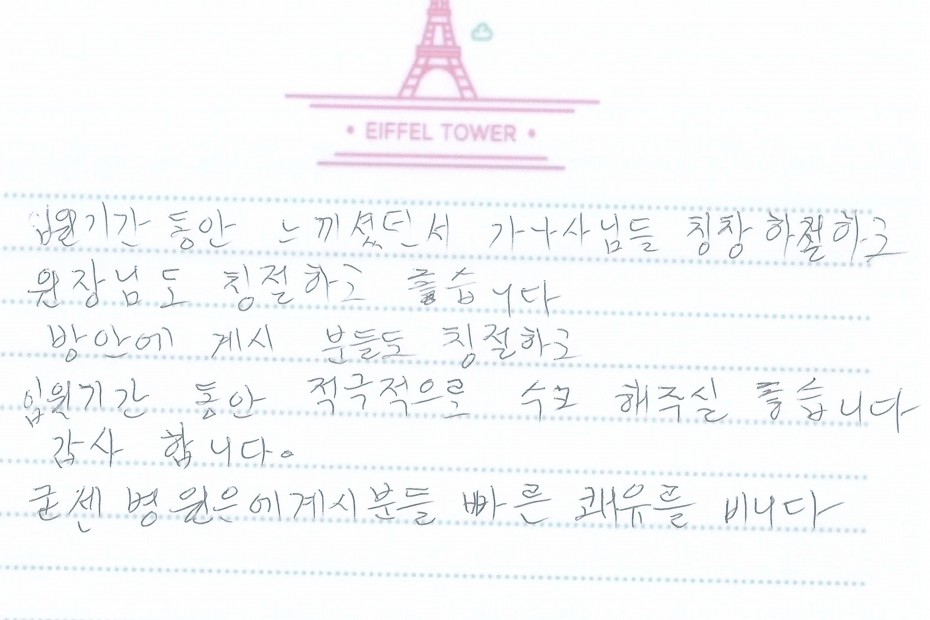 EIFFEL TOWER
입원기간 동안 느끼셨던서 가나사님들 칭창 하절하고
원장님도 칭절하고 좋습니다
방안에 계시 분들도 칭절하고
입원기간 동안 적극적으로 수고 해주실 좋습니다
감사 합니다。
굳센 병원은에계시분들 빠른 쾌유를 비니다